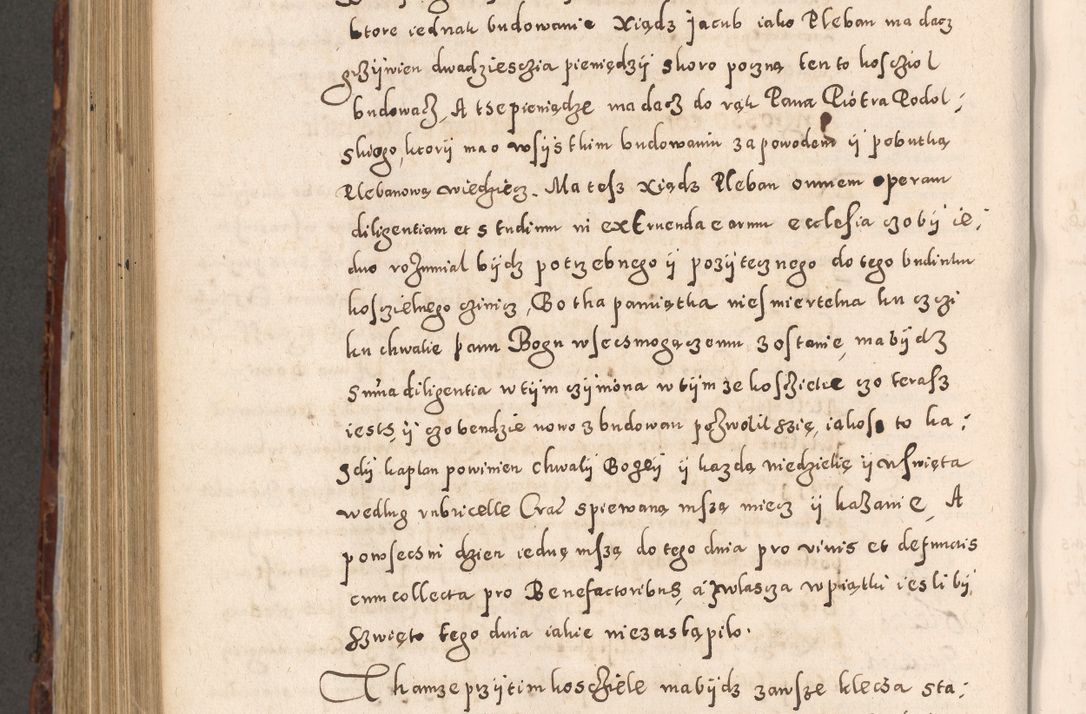 ktore iednak budowanie Xiądz jacub iako Pleban ma dacz
grzÿwien dwadziesczia pieniędzÿ skoro poczną ten to kosczioł
budowacz, A tse pieniądze ma dacz do rąk Pana Piótra Podol-
skiego, ktorÿ ma o wsÿstkim budowaniu za powodem ÿ pobutką
Plebanową wiedziecz. Ma tesz Xiądz Pleban omnem operam
diligentiam et studium in extruenda earum ecclesia czobÿ ie-
dno rozumial bÿdz potrzebnego ÿ pozÿtecznego do tego budinku
kosczielnego czinicz, Bo tha pamiątka niesmiertelna ku czczi
ku chwalie panu Bogu wsecsmogączemu zostanie, ma bÿdz
suma diligentia w tÿm czÿniona w tÿm ze kosczielie czo terasz
iests, ÿ czo bendzie nowo zbudowan pozwolil szię, iakosz to ka-
zdÿ kaplan powinien chwalÿ Bozeÿ ÿ kazdą niedzielię ÿ w swięta
według rubricelle Crac spiewaną mszą miecz ÿ kazanie, A
powsecsni dzien iedną mszą do tego dnia pro vivis et defunctis
cum collecta pro Benefactoribus, a zwlascza w piątki iesli bÿ
szwięto tego dnia iakie niezastąpilo.
Tham ze przÿ tim kosczielie ma bÿdz zawsze klecza sta-